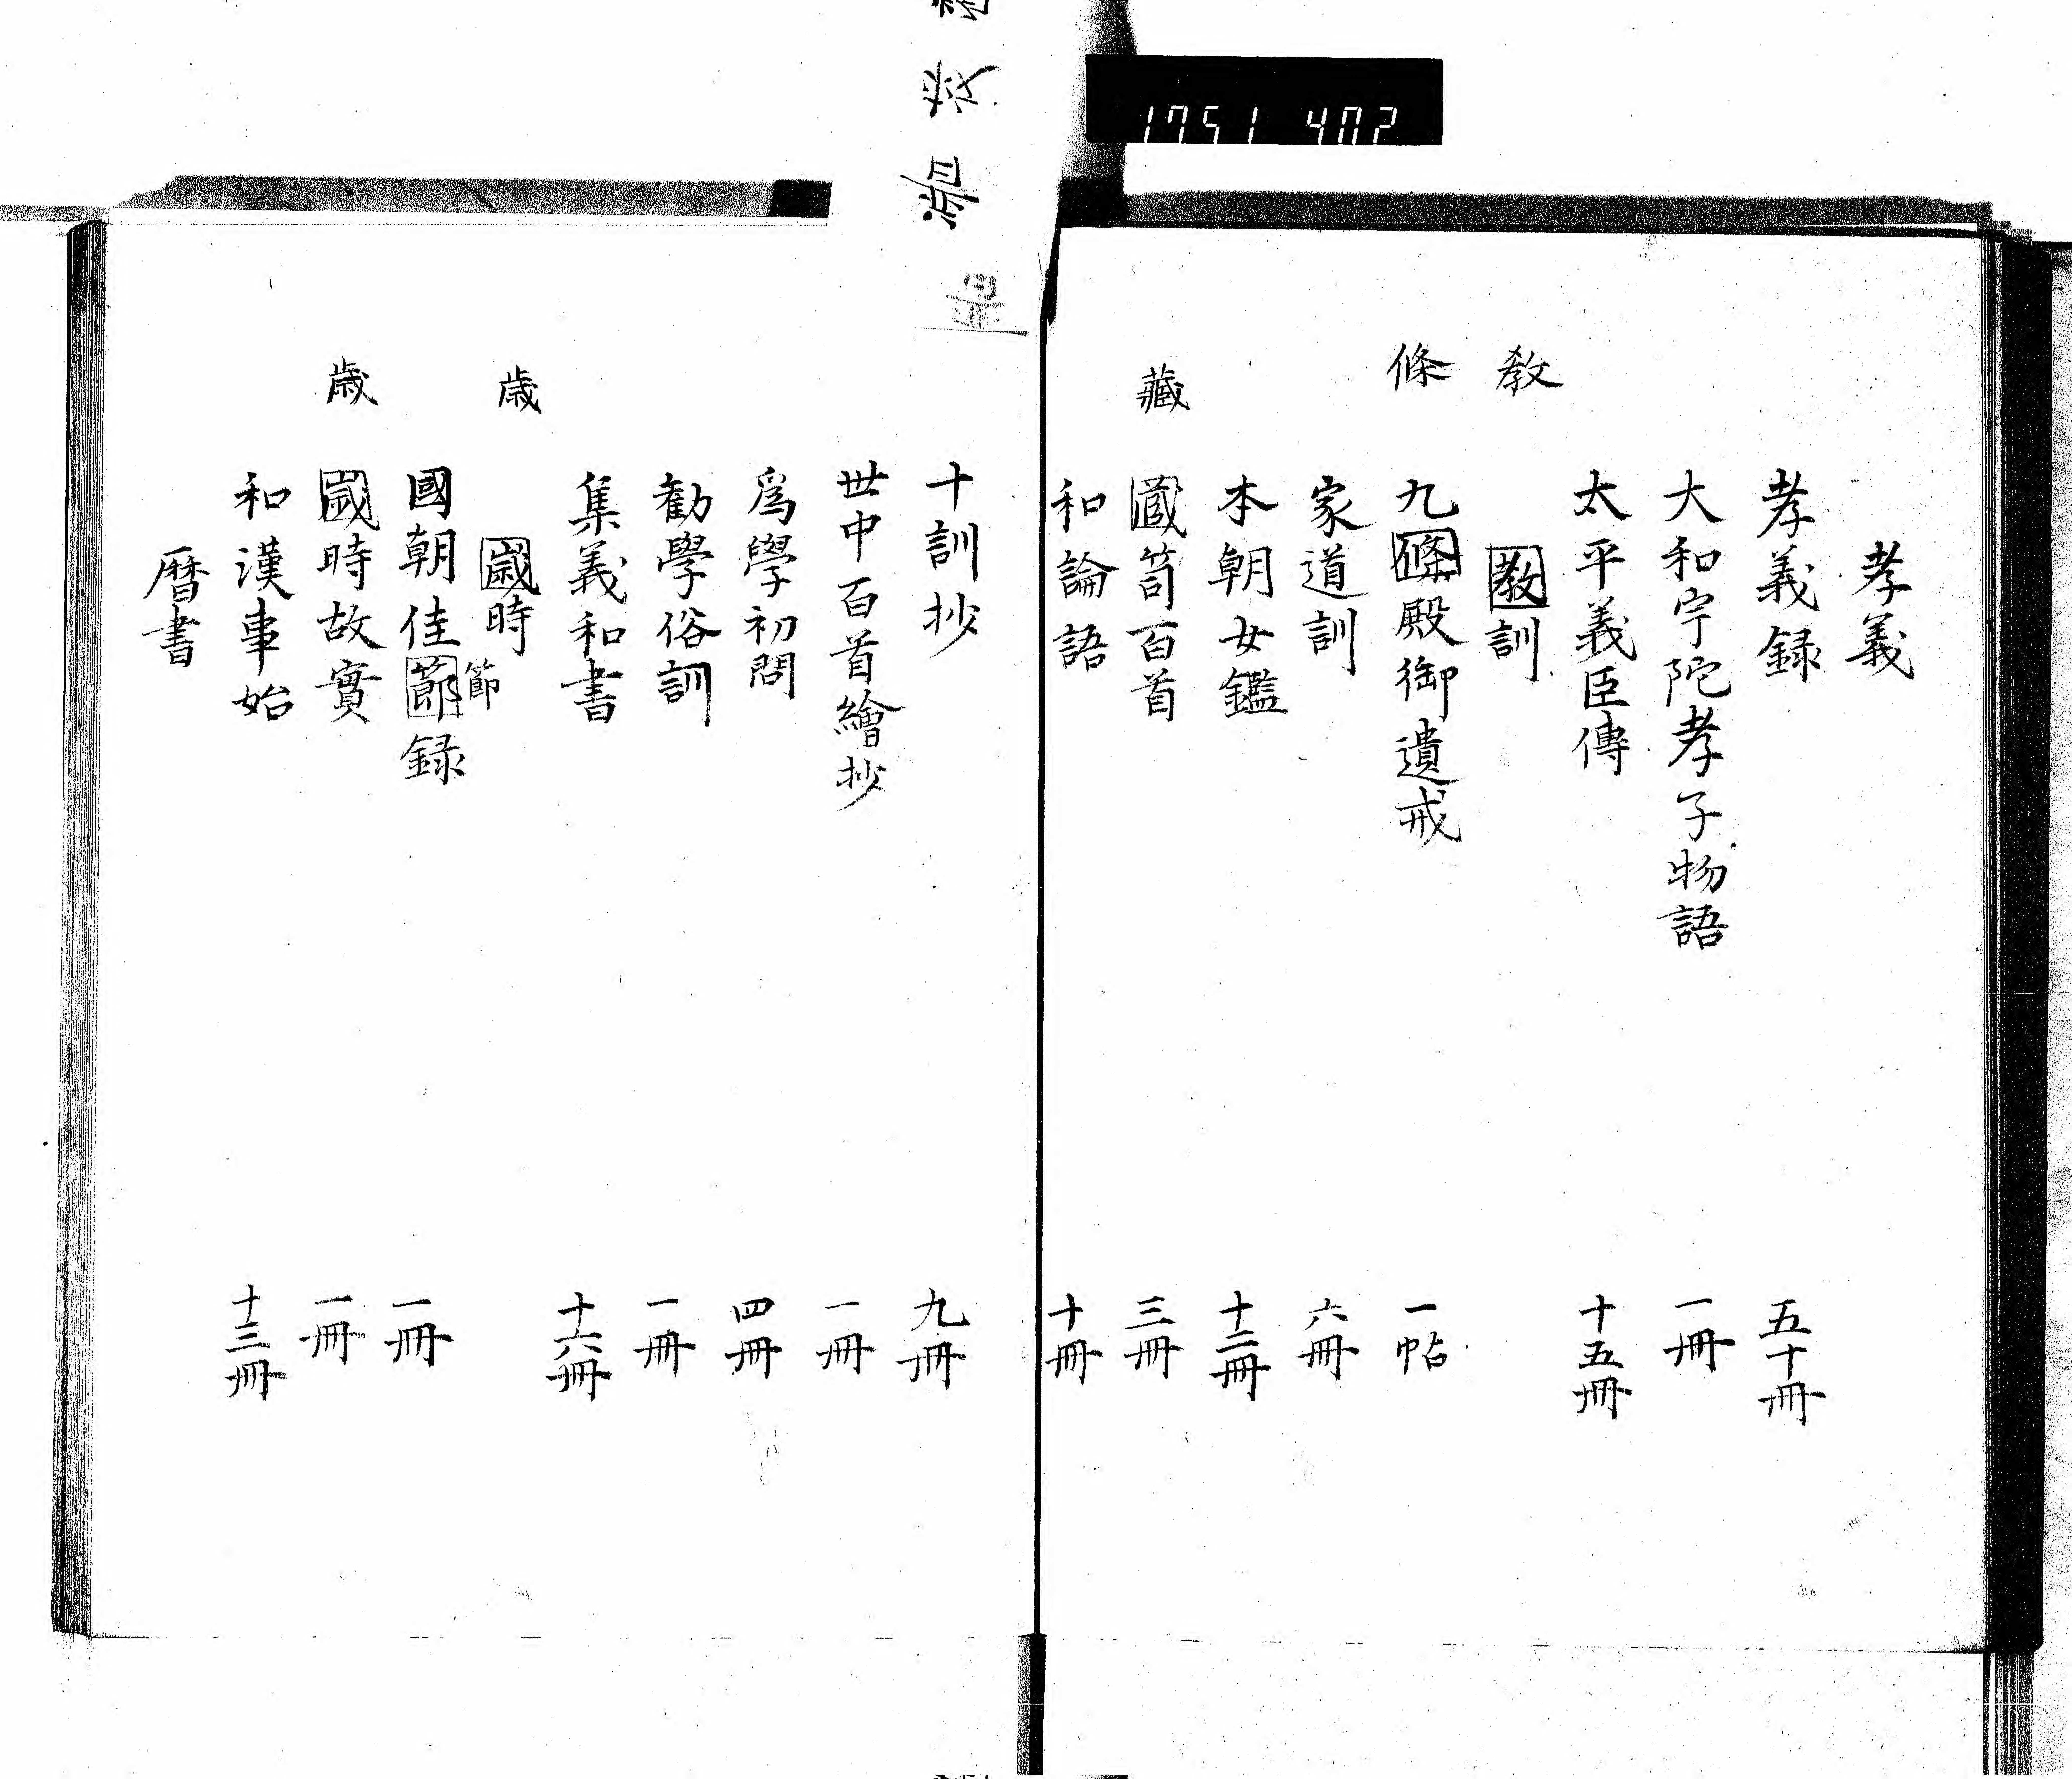 1751 402
孝義
孝義録 五十冊
大和宇陀孝子物語 一冊
太平義臣傳 十五冊
教
教訓
條
九條殿御遺戒 一帖
家道訓 六冊
本朝女鑑 十二冊
藏
蔵笥百首 三冊
和論語 十冊
十訓抄 九冊
世中百首繪抄 一冊
爲學初問 四冊
勸學俗訓 一冊
集義和書 十六冊
歳
歳時
節
國朝佳節録 一冊
歳
歳時故實 一冊
和漢事始 十三冊
暦書